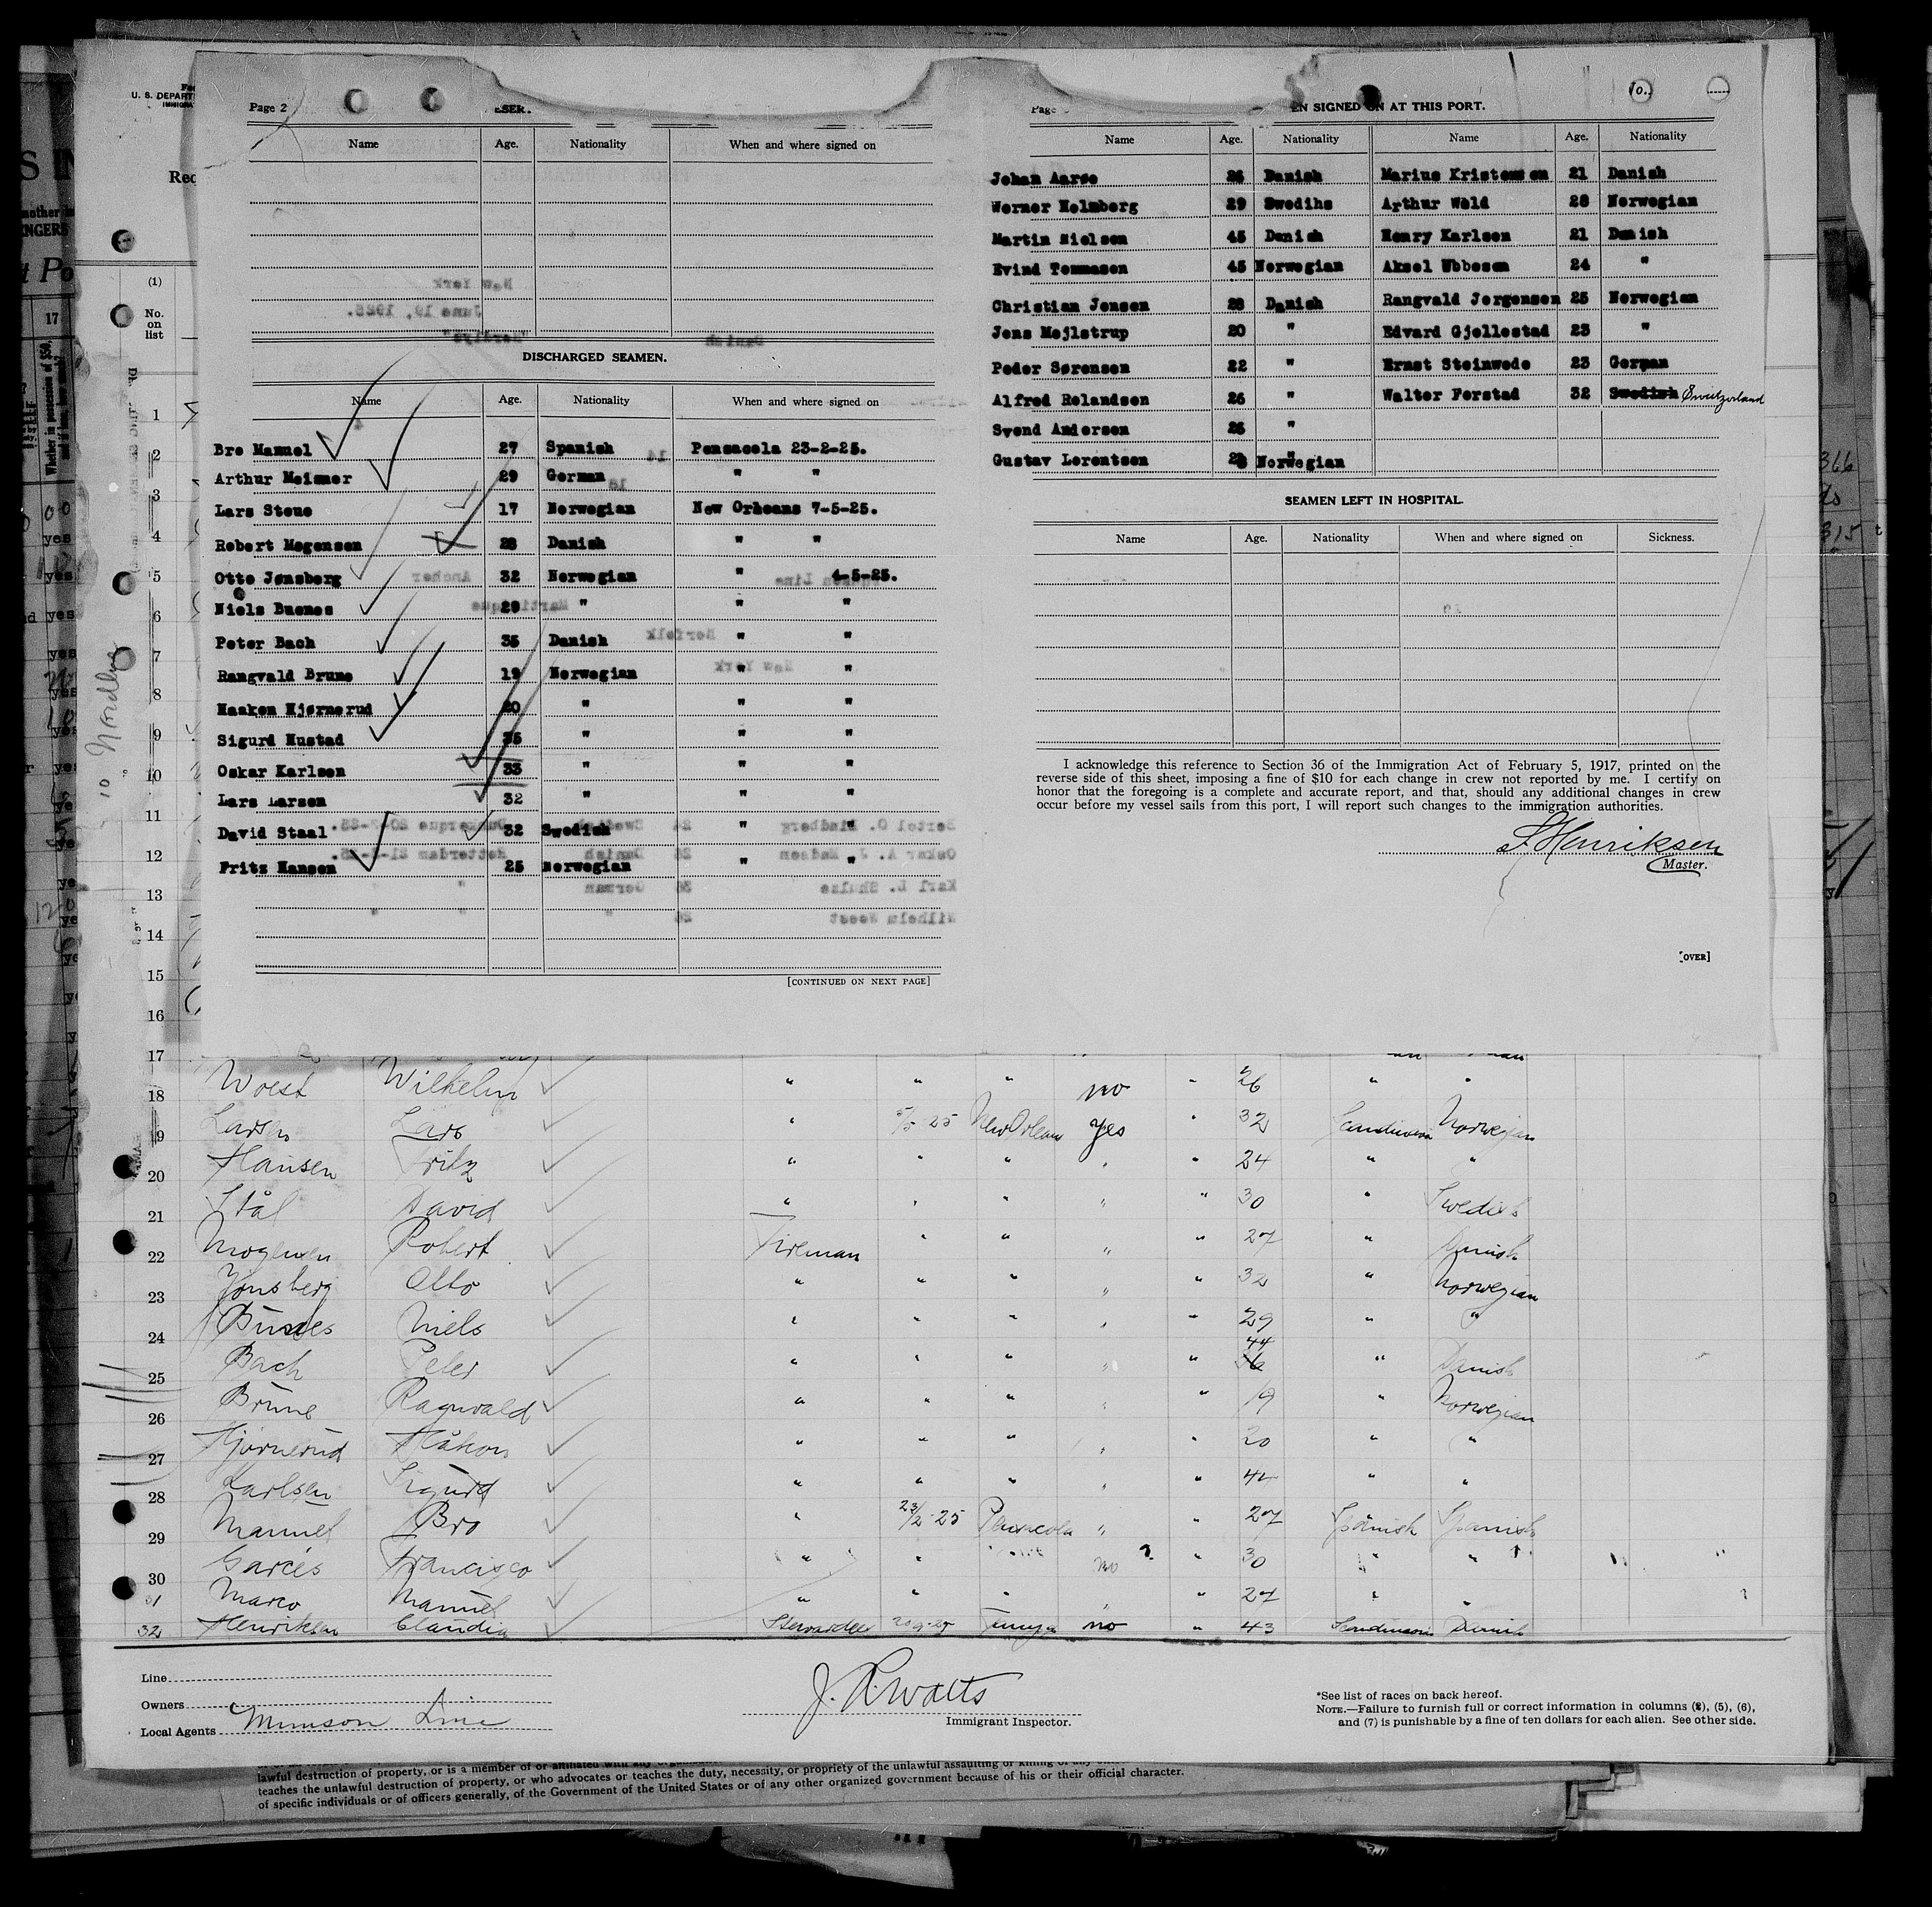 U. S. DEPART
Rec
Page 2
SER.
Name Age. Nationality When and where signed on
DISCHARGED SEAMEN.
Name Age. Nationality When and where signed on
Bro Manuel 27 Spanish Pensacola 23-2-25.
Arthur Meisner 29 German " "
Lars Steue 17 Norwegian New Orleans 7-5-25.
Robert Mogensen 28 Danish " "
Otto Jønsberg 32 Norwegian " 4-5-25.
Niels Buenes 29 " " "
Peter Bach 35 Danish " "
Rangvald Brune 19 Norwegian " "
Haaken Hjørnerud 20 " " "
Sigurd Hustad 35 " " "
Oskar Karlsen 33 " " "
Lars Larsen 32 " " "
David Staal 32 Swedish " "
Fritz Hansen 25 Norwegian " "
[CONTINUED ON NEXT PAGE]
Page
EN SIGNED ON AT THIS PORT.
Name Age. Nationality Name Age. Nationality
Johan Aarøe 26 Danish Marius Kristensen 21 Danish
Werner Holmberg 29 Swedihs Arthur Wold 28 Norwegian
Martin Nielsen 45 Danish Henry Karlsen 21 Danish
Evind Tommasen 45 Norwegian Aksel Ubbesen 24 "
Christian Jensen 28 Danish Rangvald Jørgensen 25 Norwegian
Jens Mejlstrup 20 " Edvard Gjellestad 23 "
Peder Sørensen 22 " Ernst Steinwede 23 German
Alfred Relandsen 26 " Walter Forstad 32 Swedish Switzerland
Svend Andersen 25 "
Gustav Lorentsen Norwegian
SEAMEN LEFT IN HOSPITAL.
Name Age. Nationality When and where signed on Sickness.
I acknowledge this reference to Section 36 of the Immigration Act of February 5, 1917, printed on the
reverse side of this sheet, imposing a fine of $10 for each change in crew not reported by me. I certify on
honor that the foregoing is a complete and accurate report, and that, should any additional changes in crew
occur before my vessel sails from this port, I will report such changes to the immigration authorities.
Henriksen
Master.
[OVER]
(1)
No.
on
list
10 Nordlys
1
2
3
4
5
6
7
8
9
10
11
12
13
14
15
16
17
18 Woest Wilhelm " " " no " 26 " "
19 Larsen Lars " 5/5-25 New Orleans yes " 32 Scandinavian Norwegian
20 Hansen Fritz " " " " " 24 " "
21 Stål David " " " " " 30 " Swedish
22 Mogensen Robert Fireman " " " " 27 " Danish
23 Jönsberg Otto " " " " " 32 " Norwegian
24 Buenes Niels " " " " " 29 " "
25 Bach Peter " " " " " 44 " Danish
26 Brune Ragnvald " " " " " 19 " Norwegian
27 Hjörnerud Håkon " " " " " 20 " "
28 Karlsen Sigurd " " " " " 42 " "
29 Manuel Bro " 23/2-25 Pensacola " " 27 Spanish Spanish
30 Garcés Francisco " " no " 30 " "
31 Marco Manuel " " " " " 27 " "
32 Henriksen Claudia Stewardess no " 43 Scandinavian Danish
Line
Owners
Local Agents Munson Line
J. R. Watts
Immigrant Inspector.
*See list of races on back hereof.
NOTE.—Failure to furnish full or correct information in columns (2), (5), (6),
and (7) is punishable by a fine of ten dollars for each alien. See other side.
lawful destruction of property, or is a member of or affiliated with any
teaches the unlawful destruction of property, or who advocates or teaches the duty, necessity, or propriety of the unlawful assaulting or killing of any
of specific individuals or of officers generally, of the Government of the United States or of any other organized government because of his or their official character.